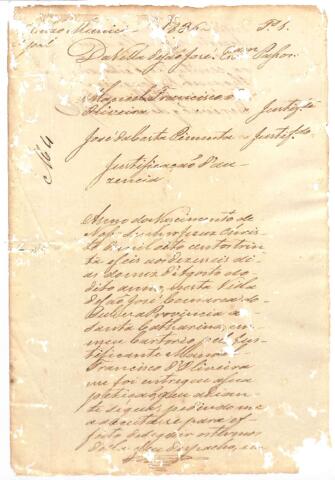 1836 Fl. 1.
Da Villa de São José. Escr.am
Manoel Francisco de
Oliveira Justif.te
José da Costa Pimenta Justif.do
No 4
Justificação d'au-
zencia
Anno do Nascimento de
Nosso Senhor Jesus Christo
de mil oito centos trin
ta e seis aos dezeseis di
as do mez d'Agosto do
dito anno, nesta Villa
de São José Comarca do
Sul da Provincia de
Santa Catharina, em
meu Cartorio pelo Jus-
tificante Manoel
Francisco d'Oliveira
me foi entregue a sua
petição que adian
te segue, pedindo me
a aceitasse para ef
feito de
despacho, em